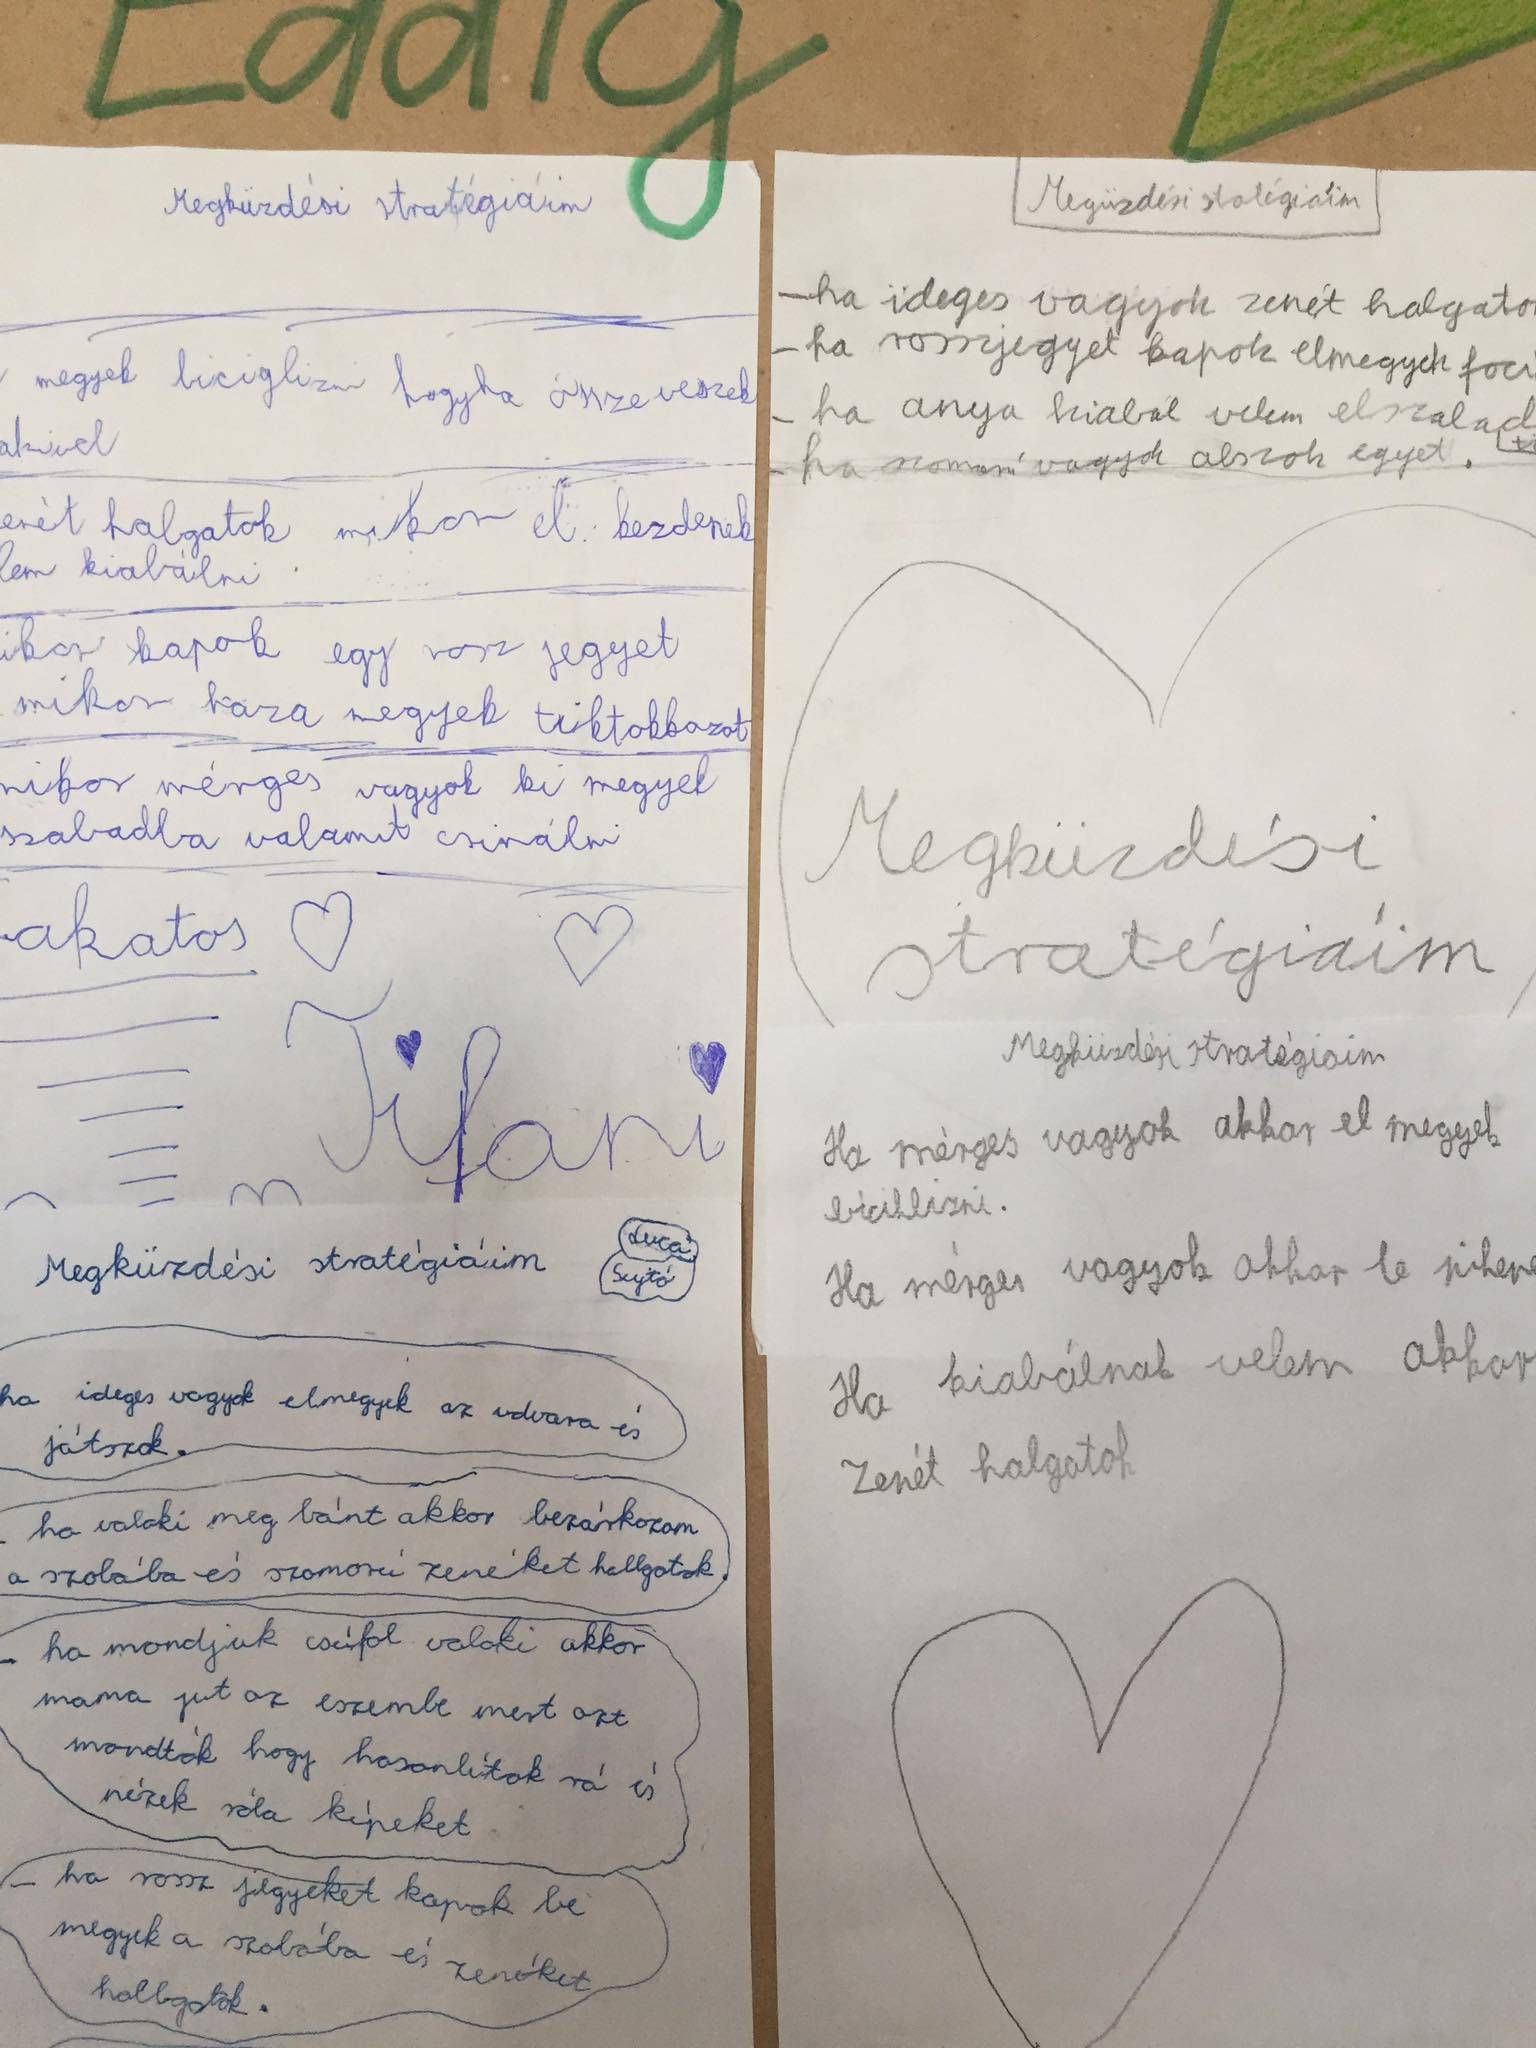 Eddig
Megküzdési stratégiáim
megyek biciglizni hogyha össze veszek
akivel
enét halgatok mikor el kezdenek
lem kiabálni
ikor kapok egy rosz jegyet
mikor haza megyek tiktokkozot
mikor mérges vagyok ki megyek
szabadba valamit csinálni
akatos
Tifani
Megküzdési stratégiáim
Luca
Sujtó
ha ideges vagyok elmegyek az udvara és
játszok.
- ha valaki meg bánt akkor bezárkozom
a szobába és szomorú zenéket hallgatok.
- ha mondjuk csúfol valaki akkor
mama jut az eszembe mert azt
mondták hogy hasonlítok rá és
nézek róla képeket
- ha rossz jegyeket kapok be
megyek a szobába és zenéket
hallgatok.
Megüzdési statégiáim
- ha ideges vagyok zenét halgatok
- ha rosszjegyet kapok elmegyek foci
- ha anya kiabál velem elszalad
- ha szomorú vagyok alszok egyet.
Megküzdési
stratégiáim
Megküzdési stratégiaim
Ha mérges vagyok akkor el megyek
bicihlizni.
Ha mérges vagyok akkor le pihene
Ha kiabálnak velem akkor
Zenét halgatok